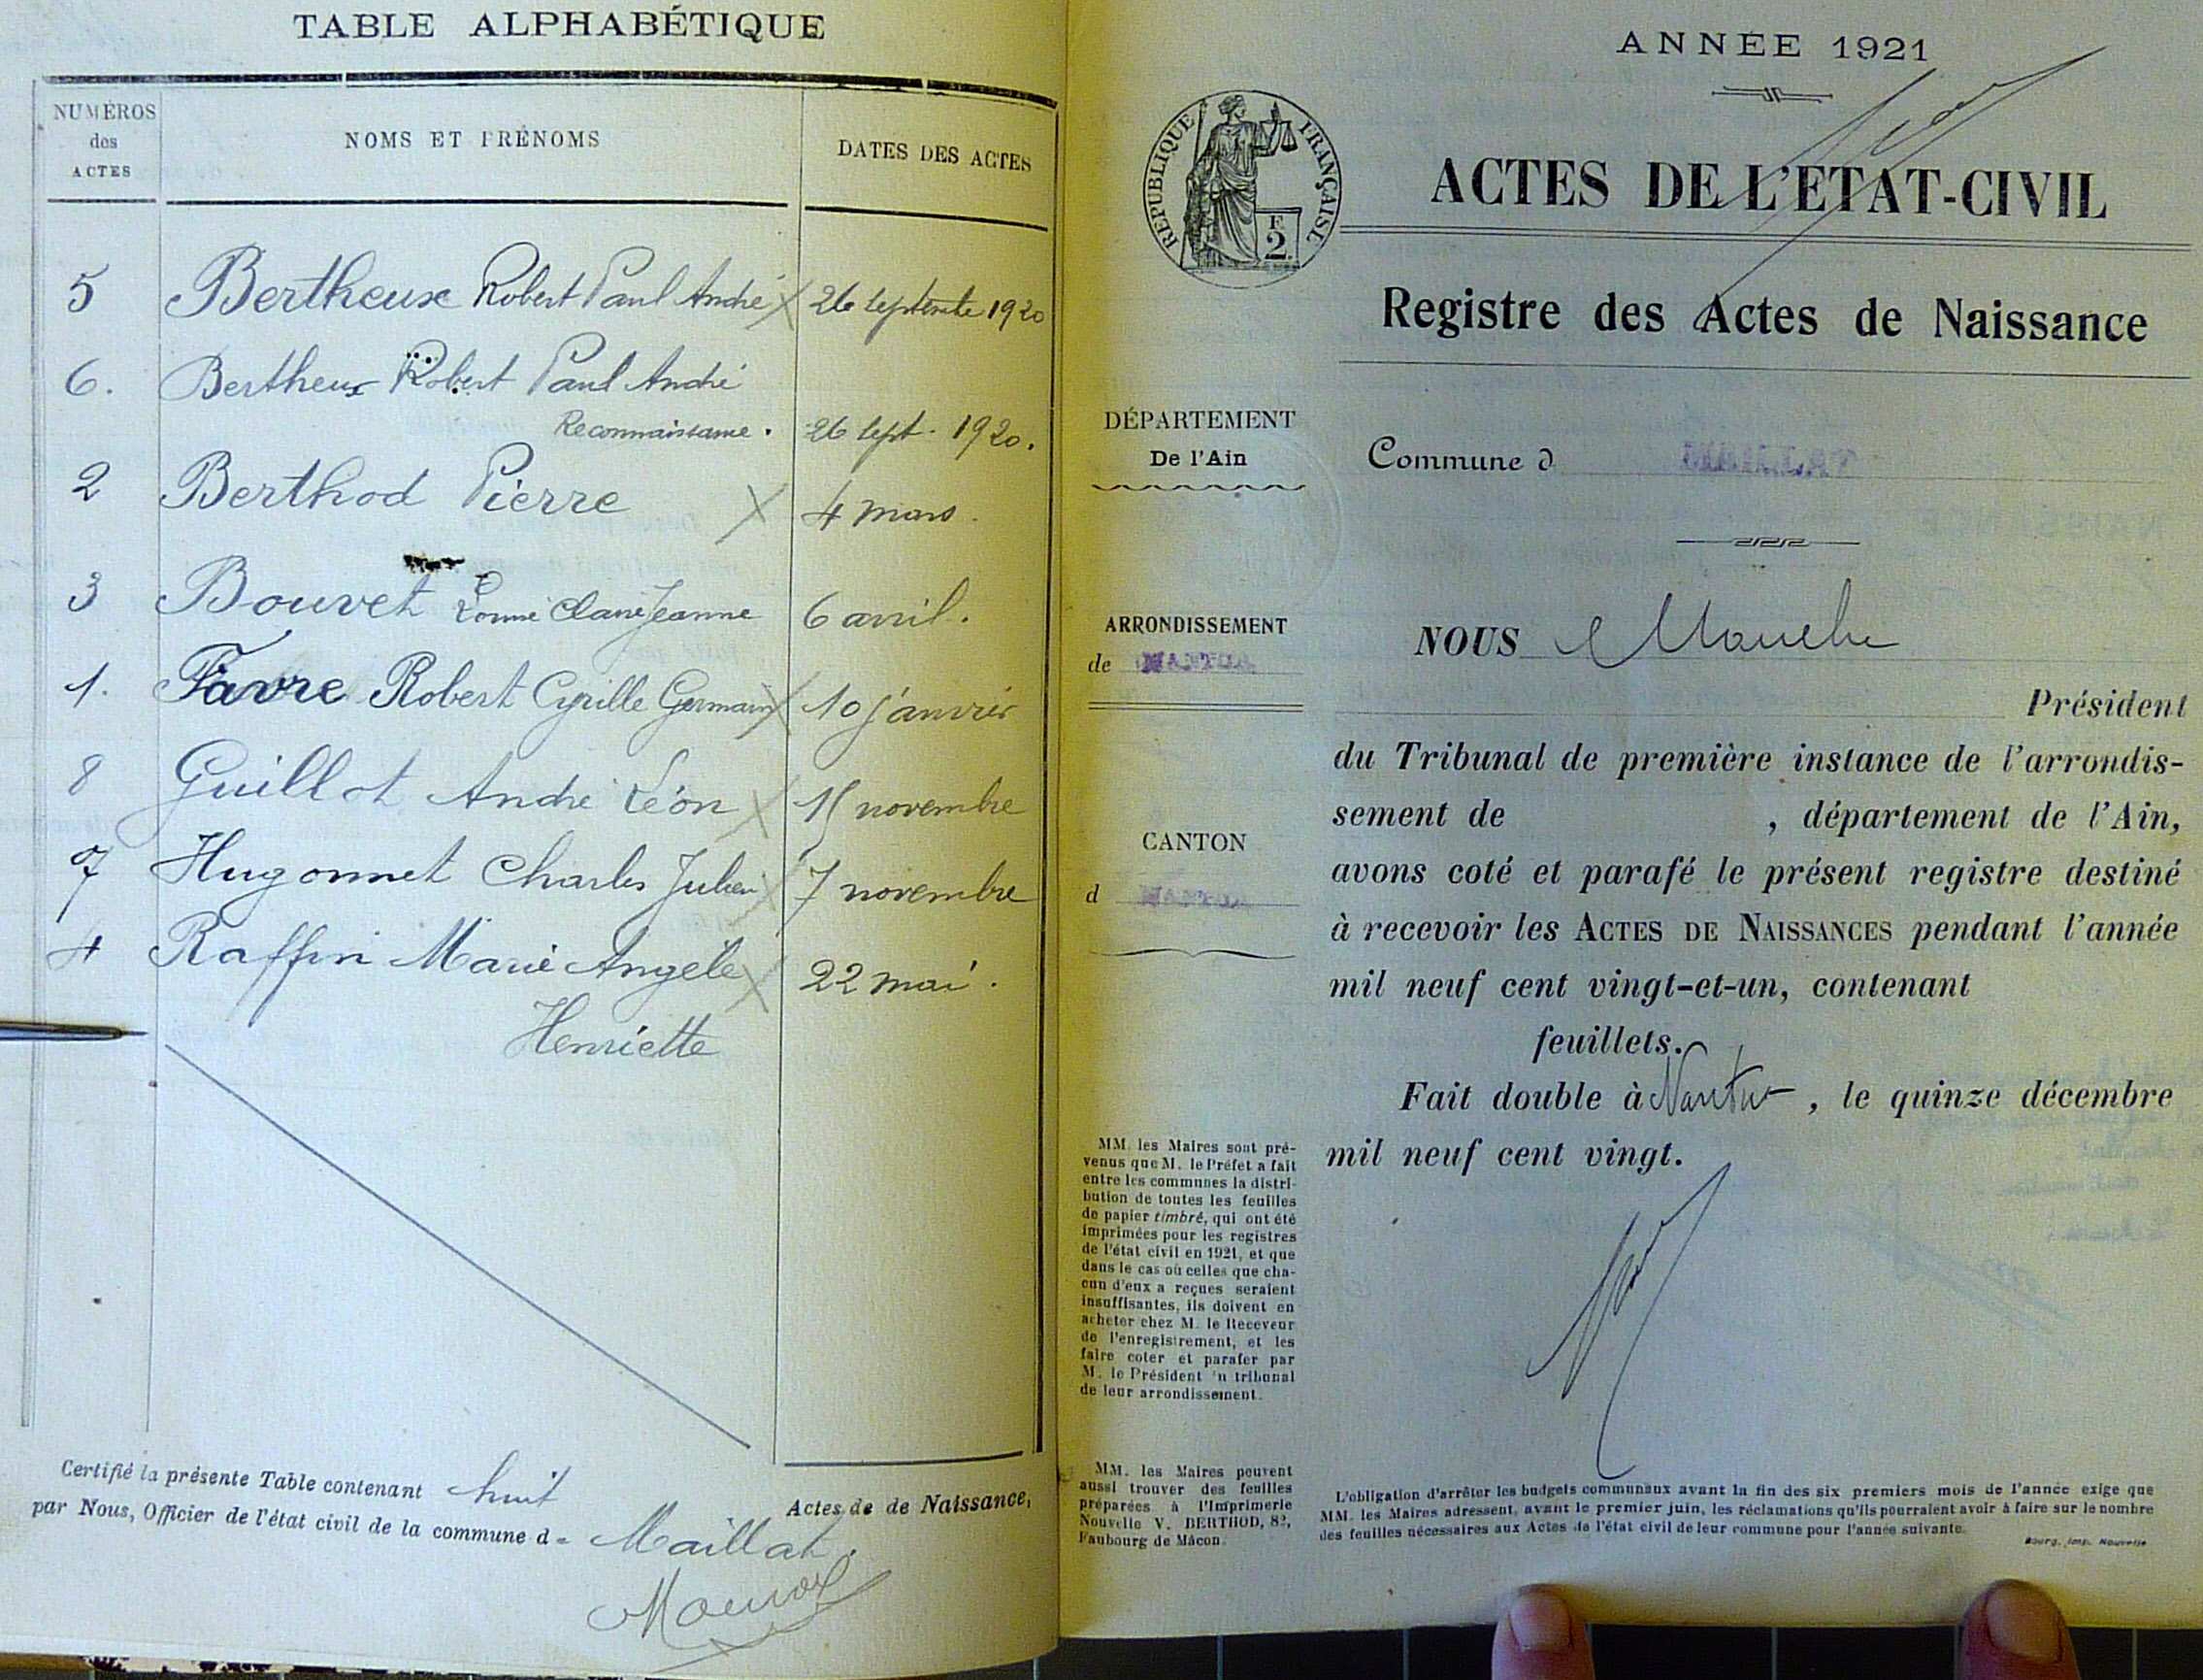 TABLE ALPHABÉTIQUE
NUMÉROS
des
ACTES
NOMS ET PRÉNOMS
DATES DES ACTES
5 Bertheux Robert Paul André 26 septembre 1920
6. Bertheux Robert Paul André
Reconnaissance. 26 sept. 1920.
2 Berthod Pierre 4 mars.
3 Bouvet Claire Jeanne 6 avril.
1. Favre Robert Cyrille Germain 10 janvier
8 Guillot André Léon 15 novembre
7 Hugonnet Charles Julien 7 novembre
4 Raffin Marie Angèle 22 mai.
Henriette
Certifié la présente Table contenant huit Actes de de Naissance,
par Nous, Officier de l'état civil de la commune d e Maillat.
ANNÉE 1921
RÉPUBLIQUE FRANÇAISE
F
2.
ACTES DE L'ETAT-CIVIL
Registre des Actes de Naissance
DÉPARTEMENT
De l'Ain
Commune d MAILLAT
ARRONDISSEMENT
de NANTUA
CANTON
d NANTUA
NOUS
Président
du Tribunal de première instance de l'arrondis-
sement de , département de l'Ain,
avons coté et parafé le présent registre destiné
à recevoir les ACTES DE NAISSANCES pendant l'année
mil neuf cent vingt-et-un, contenant
feuillets.
Fait double à Nantua, le quinze décembre
mil neuf cent vingt.
MM. les Maires sont pré-
venus que M. le Préfet a fait
entre les communes la distri-
bution de toutes les feuilles
de papier timbré, qui ont été
imprimées pour les registres
de l'état civil en 1921, et que
dans le cas où celles que cha-
cun d'eux a reçues seraient
insuffisantes, ils doivent en
acheter chez M. le Receveur
de l'enregistrement, et les
faire coter et parafer par
M. le Président du tribunal
de leur arrondissement.
MM. les Maires peuvent
aussi trouver des feuilles
préparées à l'Imprimerie
Nouvelle V. BERTHOD, 82,
Faubourg de Mâcon.
L'obligation d'arrêter les budgets communaux avant la fin des six premiers mois de l'année exige que
MM. les Maires adressent, avant le premier juin, les réclamations qu'ils pourraient avoir à faire sur le nombre
des feuilles nécessaires aux Actes de l'état civil de leur commune pour l'année suivante.
Bourg, Imp. Nouvelle